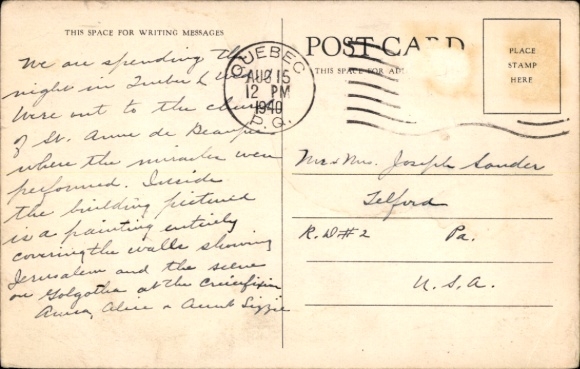 THIS SPACE FOR WRITING MESSAGES
We are spending the
night in Quebec & we
were out to the church
of St. Anne de Beaupre
where the miracles were
performed. Inside
the building pictured
is a painting entirely
covering the walls showing
Jerusalem and the scene
on Golgotha at the crucifixin
Anna, Alice & Aunt Lizzie
QUEBEC
AUG 15
12 PM
1940
P.Q.
POST CARD
THIS SPACE FOR AD
PLACE
STAMP
HERE
Mr & Mrs. Joseph Souder
Telford
R.D #2 Pa.
U.S.A.